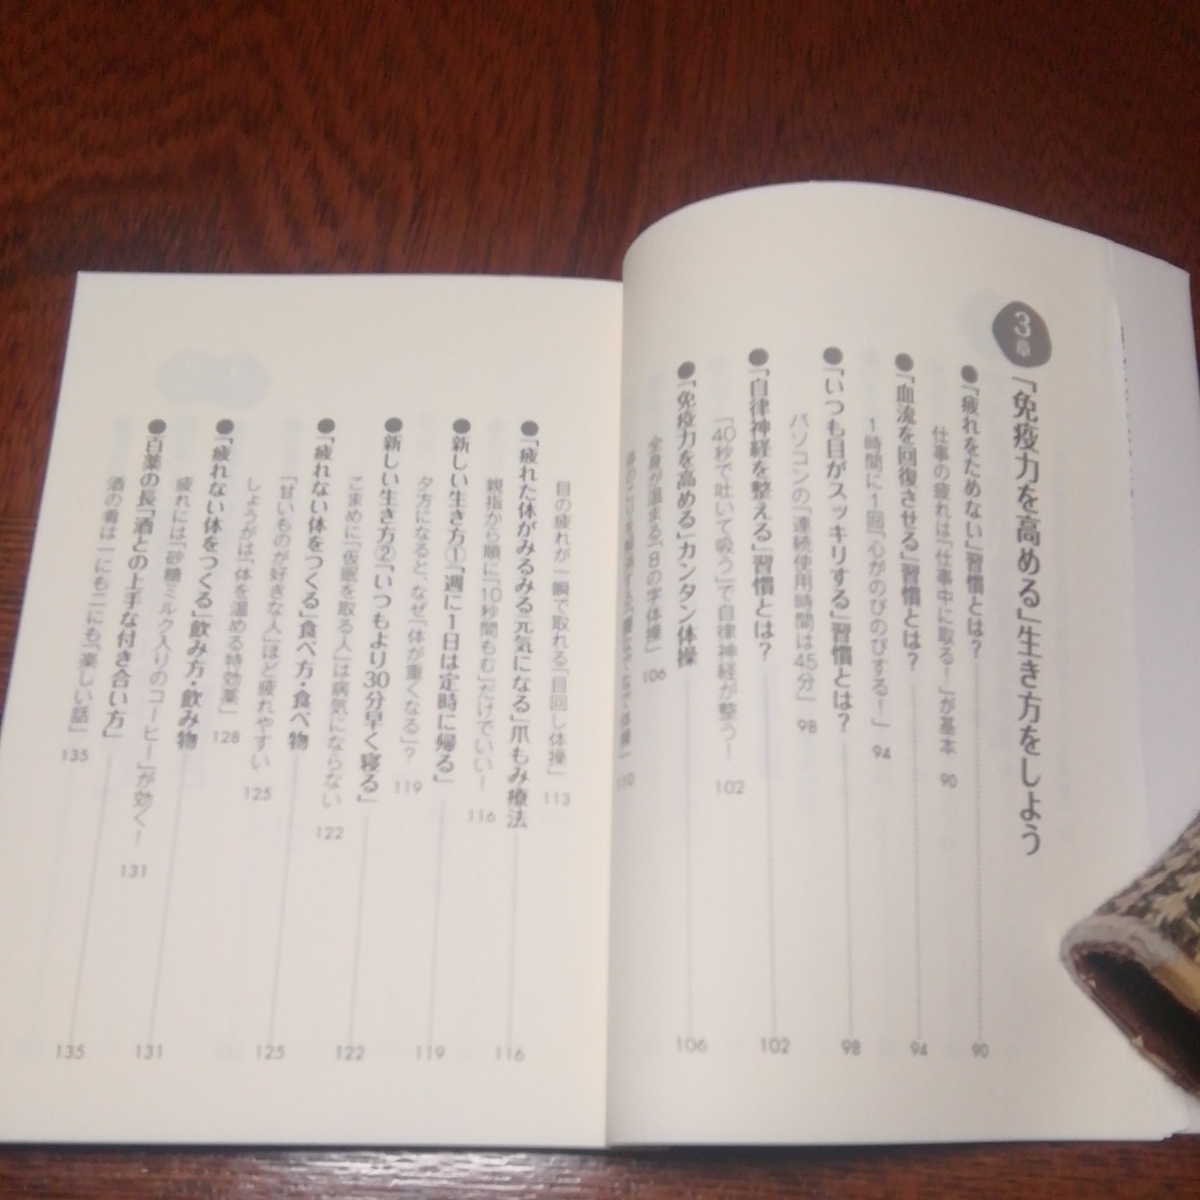 3章
「免疫力を高める」生き方をしよう
●「疲れをためない」習慣とは? 90
仕事の疲れは「仕事中に取る!」が基本 90
●「血流を回復させる」習慣とは? 94
1時間に1回「心がのびのびする!」 94
●「いつも目がスッキリする」習慣とは? 98
パソコンの「連続使用時間は45分」 98
●「自律神経を整える」習慣とは? 102
「40秒で吐いて吸う」で自律神経が整う! 102
●「免疫力を高める」カンタン体操 106
全身が温まる「8の字体操」 106
110
目の疲れが一瞬で取れる「目回し体操」 113
●「疲れた体がみるみる元気になる」爪もみ療法 116
親指から順に「10秒間もむ」だけでいい! 116
●新しい生き方①「週に1日は定時に帰る」 119
夕方になると、なぜ「体が重くなる」? 119
●新しい生き方②「いつもより30分早く寝る」 122
こまめに「仮眠を取る人」は病気にならない 122
●「疲れない体をつくる」食べ方・食べ物 125
「甘いものが好きな人」ほど疲れやすい 125
しょうがは「体を温める特効薬」 128
●「疲れない体をつくる」飲み方・飲み物 131
疲れには「砂糖ミルク入りのコーヒー」が効く! 131
●百薬の長「酒との上手な付き合い方」 135
酒の肴は一にも二にも「楽しい話」 135